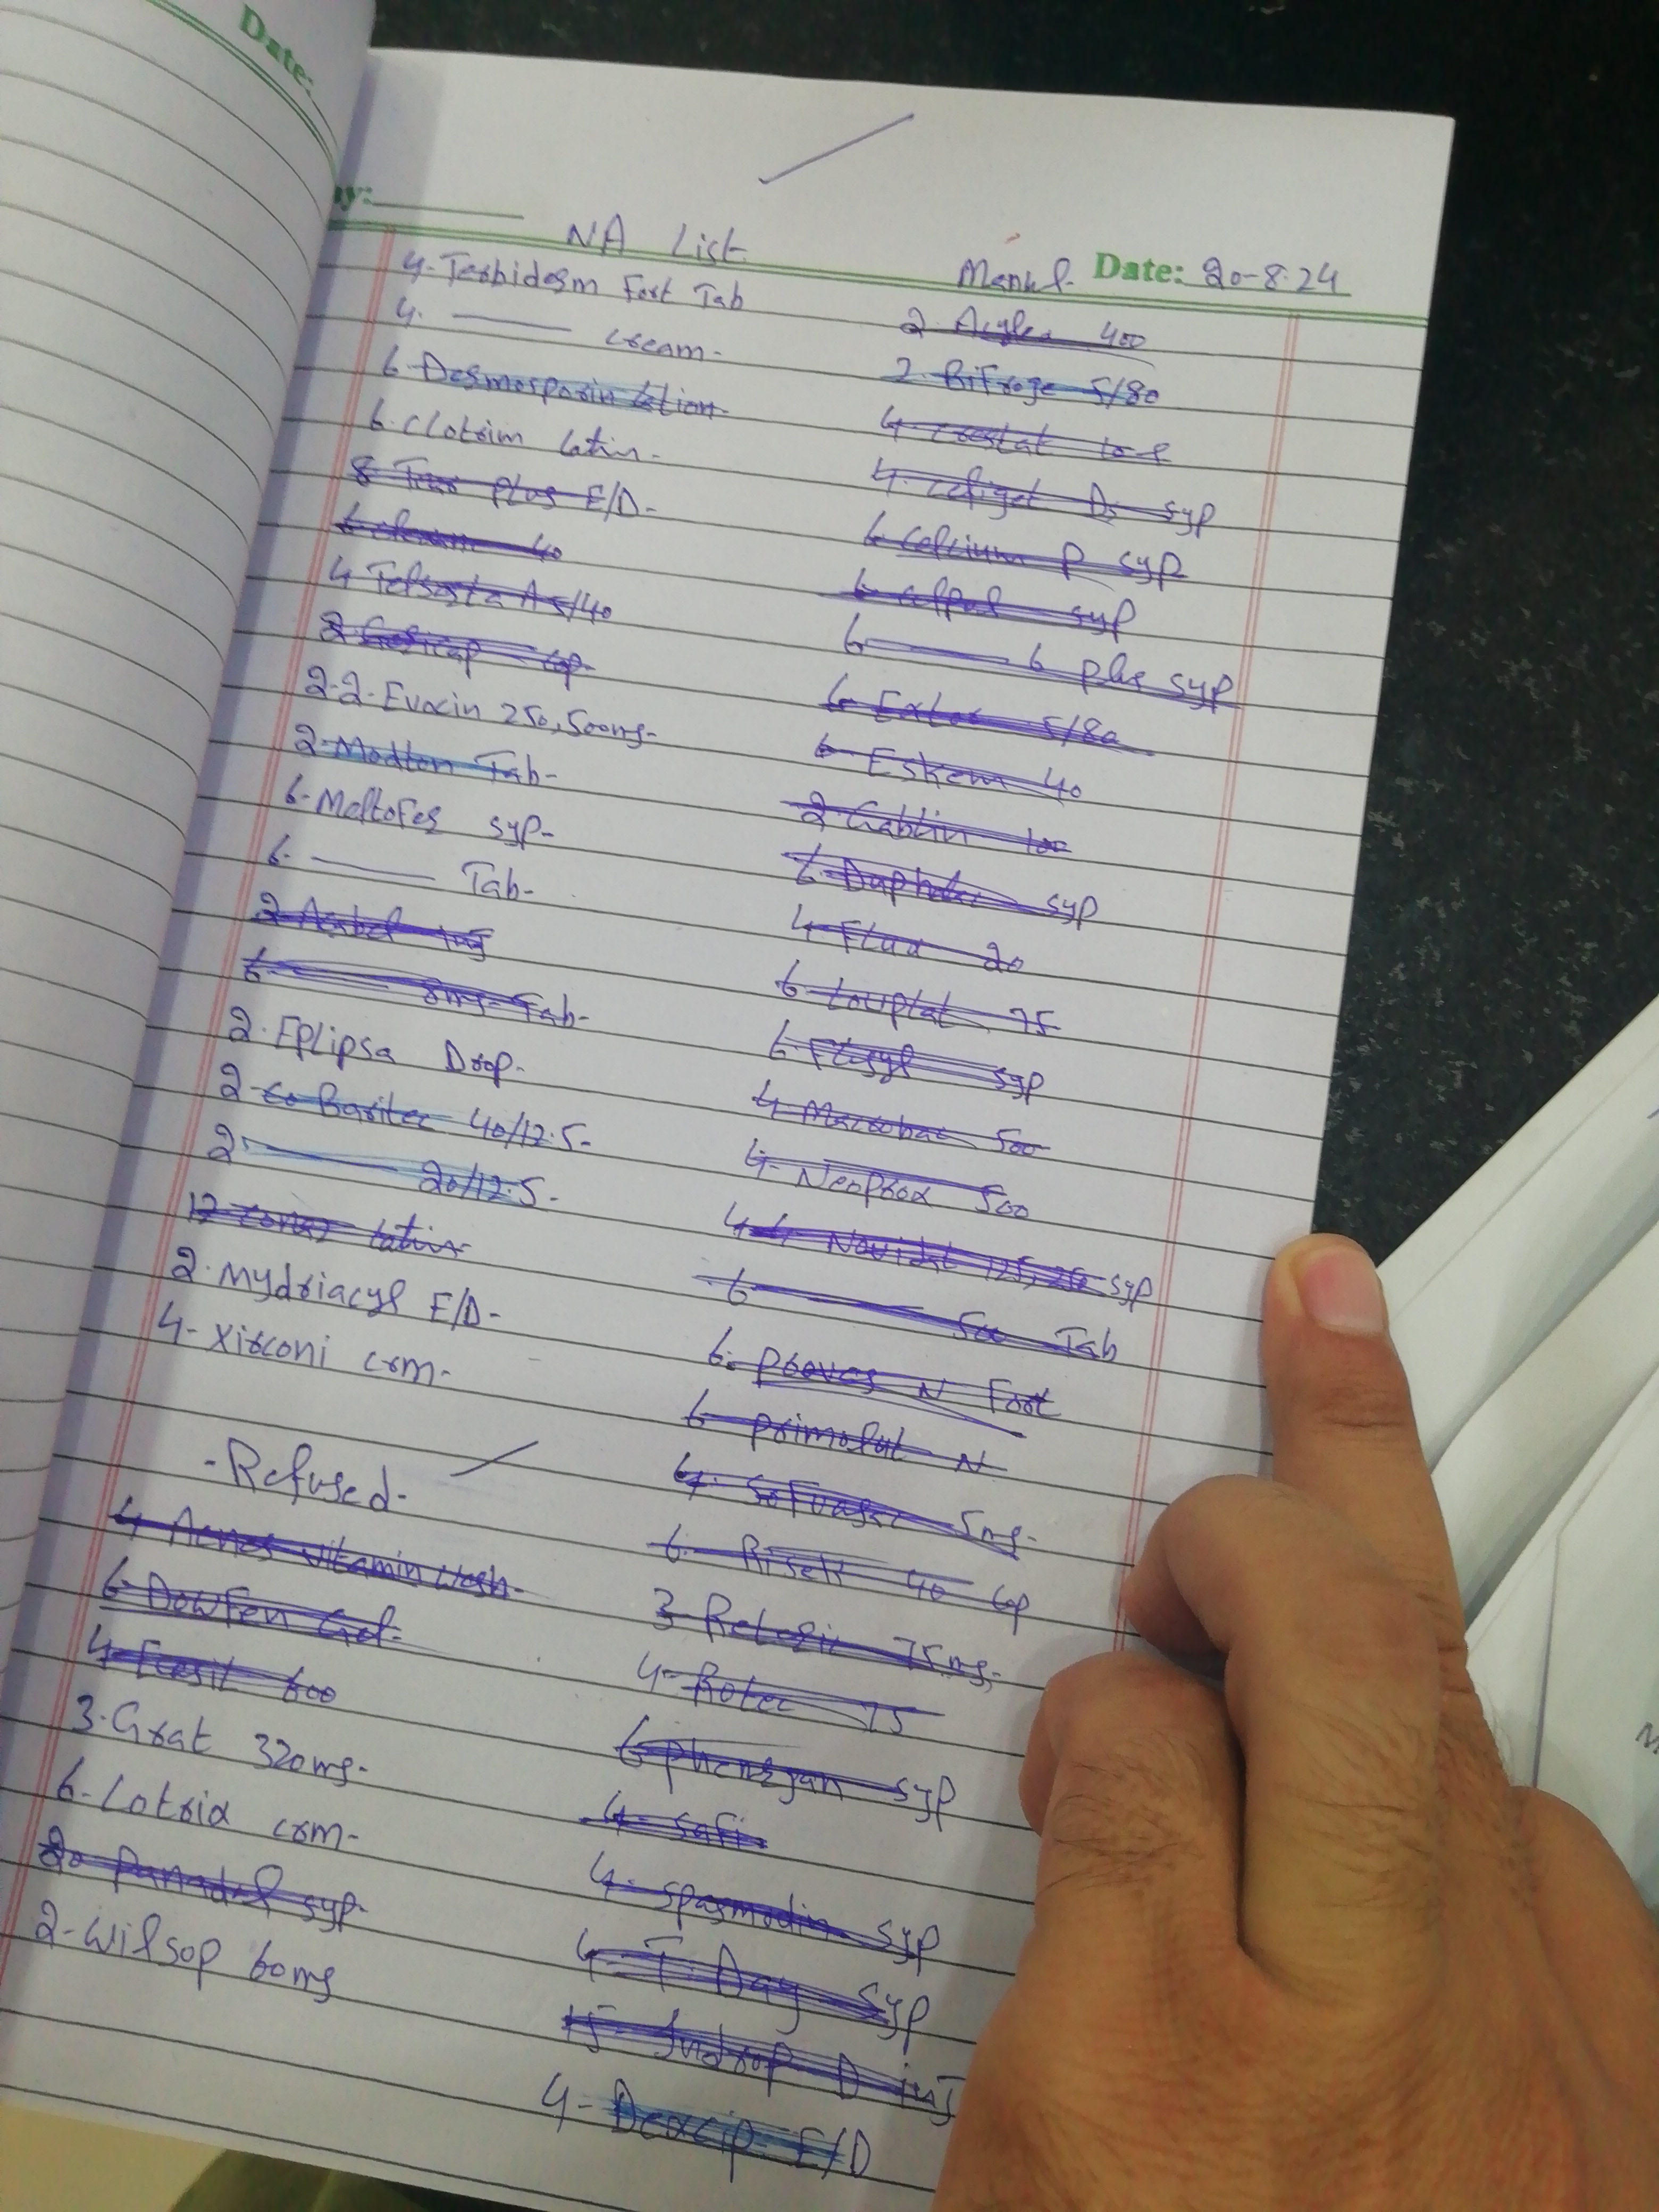 Date:
ay:
NA List
Manul Date: 20-8-24
4- Terbiderm Fort Tab
4. —— cream-
6- Dermosporin lotion-
6. Clotrim lotin-
8 Tear Plus E/D-
6 40
4 Telsarta A 5/40
2 cap-
2-2- Evocin 250, 500mg-
2- Modton Tab-
6- Maltofer syp-
6- —— Tab-
2 Inj
6 —— 8mg Tab-
2. Eplipsa Drop-
2- Co Baritec 40/12.5-
2 —— 20/12.5-
12 lotin-
2. Mydriacyl E/D-
4- Xirconi crm-
-Refused-
4 Acnes vitamin wash-
6- Dowfen Gel-
4- 600
3. Grat 320mg-
6- Lotrix crm-
20 Panadol syp-
2- Wilsop 60mg
2 400
2. BiForge 5/80
4 10
4. Cefiget Ds syp
6 Calcium P syp
6 Calpol syp
6 —— 6 plus syp
6- Exfor 5/80
6- Eskem 40
2 Gablin 100
6 Duphalac syp
4 Flux 20
6 Lowplat 75
6- Flagyl syp
4 500
4- Neoprox 500
4 Novidat 125, syp
6 —— 500 Tab
6. Provas N Fort
6 primolut N
4. Sofvasc 5mg-
6. Risek 40 cap
3- 75mg-
4- Rotec 75
6 phenrgan syp
4- Safi
4- spasmodin syp
4- T Day syp
15 Indrop D inj
4- Dexcip E/D